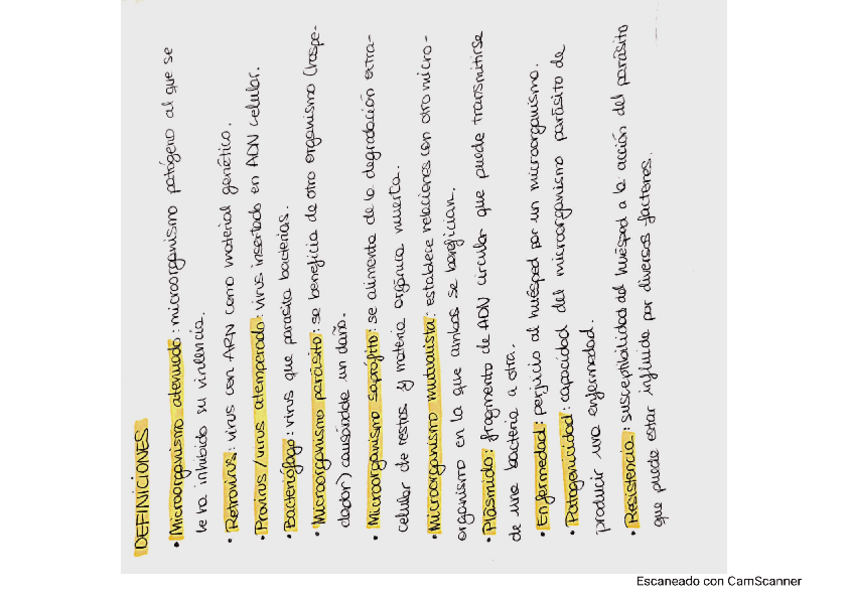 DEFINICIONES
• Microorganismo atenuado: microorganismo patógeno al que se
le ha inhibido su virulencia.
• Retrovirus: virus con ARN como material genético.
• Provirus / virus atemperado: virus insertado en ADN celular.
• Bacteriófago: virus que parasita bacterias.
• Microorganismo parásito: se beneficia de otro organismo (hospe-
dador) causándole un daño.
• Microorganismo saprófito: se alimenta de la degradación extra-
celular de restos y materia orgánica muerta.
• Microorganismo mutualista: establece relaciones con otro micro-
organismo en la que ambos se benefician.
• Plásmido: fragmento de ADN circular que puede transmitirse
de una bacteria a otra.
• Enfermedad: perjuicio al huésped por un microorganismo.
• Patogenicidad: capacidad del microorganismo parásito de
producir una enfermedad.
• Resistencia: susceptibilidad del huésped a la acción del parásito
que puede estar influida por diversos factores.
Escaneado con CamScanner